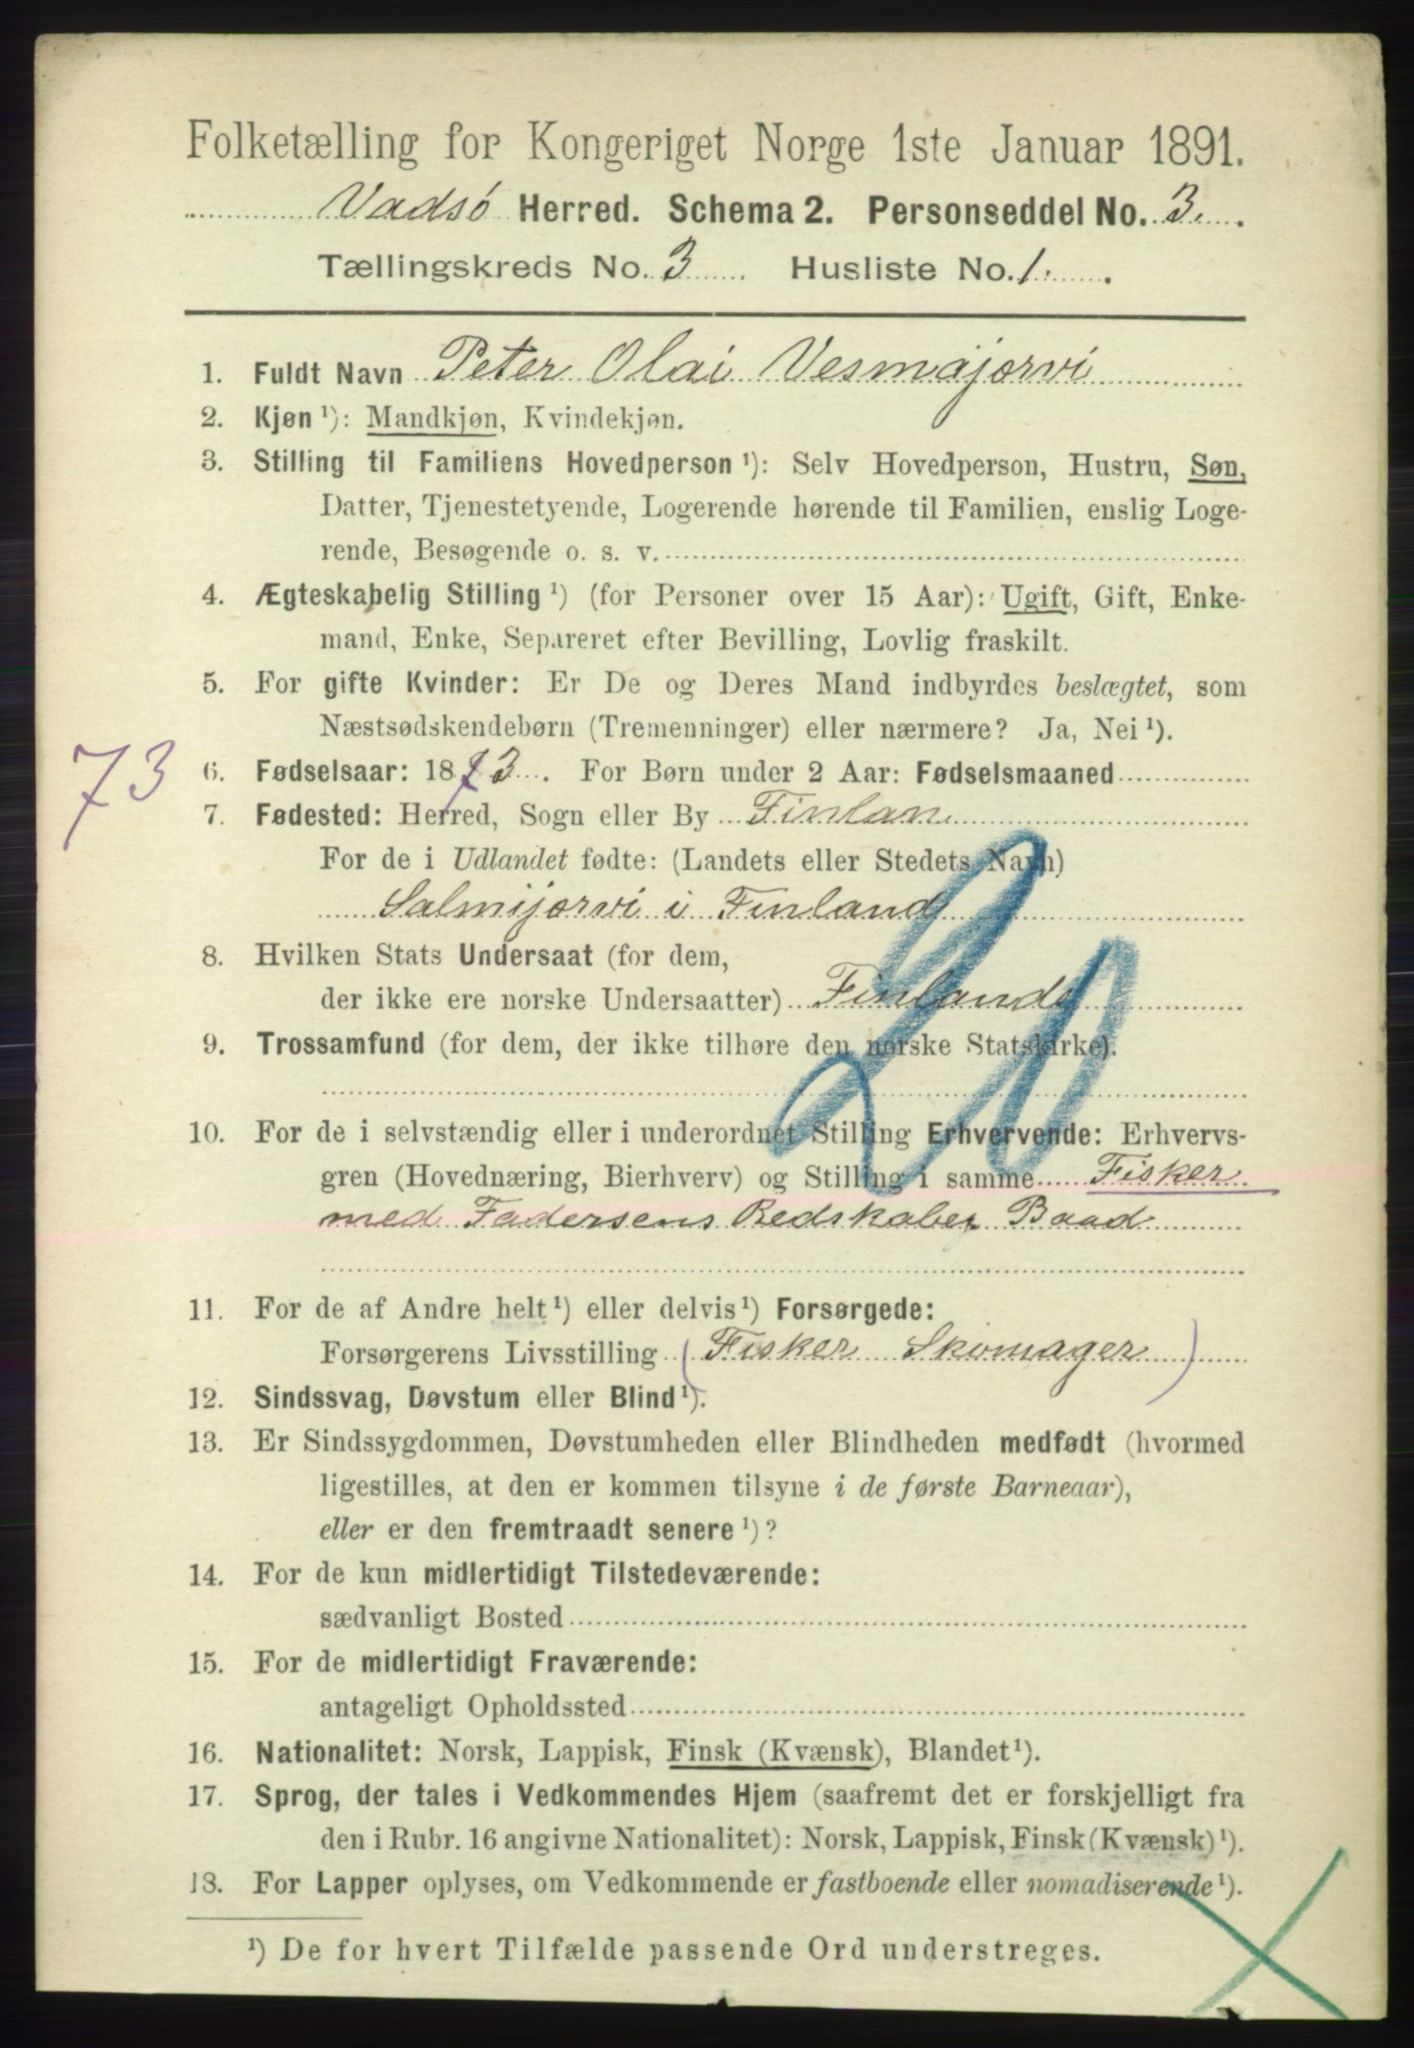 Folketælling for Kongeriget Norge 1ste Januar 1891.
Vadsö Herred. Schema 2. Personseddel No. 3.
Tællingskreds No. 3 Husliste No. 1.
1. Fuldt Navn Peter Olai Vesmajorvi
2. Kjøn ¹): Mandkjøn, Kvindekjøn.
3. Stilling til Familiens Hovedperson ¹): Selv Hovedperson, Hustru, Søn,
Datter, Tjenestetyende, Logerende hørende til Familien, enslig Loge-
rende, Besøgende o. s. v.
4. Ægteskabelig Stilling ¹) (for Personer over 15 Aar): Ugift, Gift, Enke-
mand, Enke, Separeret efter Bevilling, Lovlig fraskilt.
5. For gifte Kvinder: Er De og Deres Mand indbyrdes beslægtet, som
Næstsødskendebørn (Tremenninger) eller nærmere? Ja, Nei ¹).
73 6. Fødselsaar: 1873. For Børn under 2 Aar: Fødselsmaaned
7. Fødested: Herred, Sogn eller By Finlan
For de i Udlandet fødte: (Landets eller Stedets Navn)
Salmijorvi i Finland
8. Hvilken Stats Undersaat (for dem,
der ikke ere norske Undersaatter) Finlands
9. Trossamfund (for dem, der ikke tilhøre den norske Statskirke).
20
10. For de i selvstændig eller i underordnet Stilling Erhvervende: Erhvervs-
gren (Hovednæring, Bierhverv) og Stilling i samme Fisker
med Fadersens Redskaber Baad
11. For de af Andre helt ¹) eller delvis ¹) Forsørgede:
Forsørgerens Livsstilling (Fisker Skomager)
12. Sindssvag, Døvstum eller Blind ¹).
13. Er Sindssygdommen, Døvstumheden eller Blindheden medfødt (hvormed
ligestilles, at den er kommen tilsyne i de første Barneaar),
eller er den fremtraadt senere ¹)?
14. For de kun midlertidigt Tilstedeværende:
sædvanligt Bosted
15. For de midlertidigt Fraværende:
antageligt Opholdssted
16. Nationalitet: Norsk, Lappisk, Finsk (Kvænsk), Blandet ¹).
17. Sprog, der tales i Vedkommendes Hjem (saafremt det er forskjelligt fra
den i Rubr. 16 angivne Nationalitet): Norsk, Lappisk, Finsk (Kvænsk) ¹).
18. For Lapper oplyses, om Vedkommende er fastboende eller nomadiserende ¹).
¹) De for hvert Tilfælde passende Ord understreges.